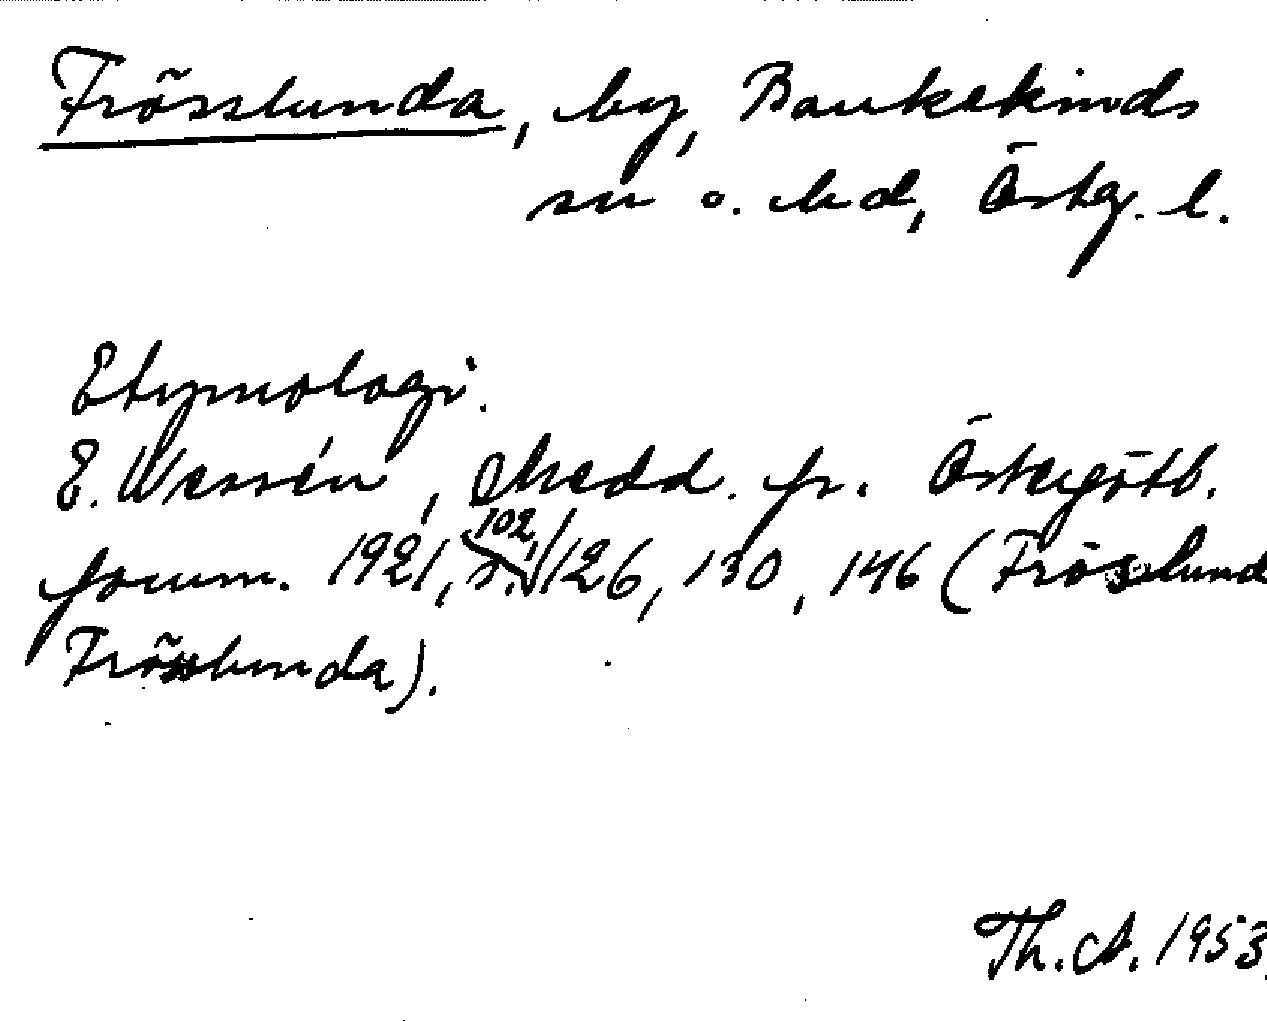 Frösslunda, by, Bankekinds
sn o. hd, Östg. l.
Etymologi.
E. Wessén, Medd. fr. Östergötl.
fornm. 1921, s. 102, 126, 130, 146 (Fröslund
Frösslunda).
Th. A. 1953.